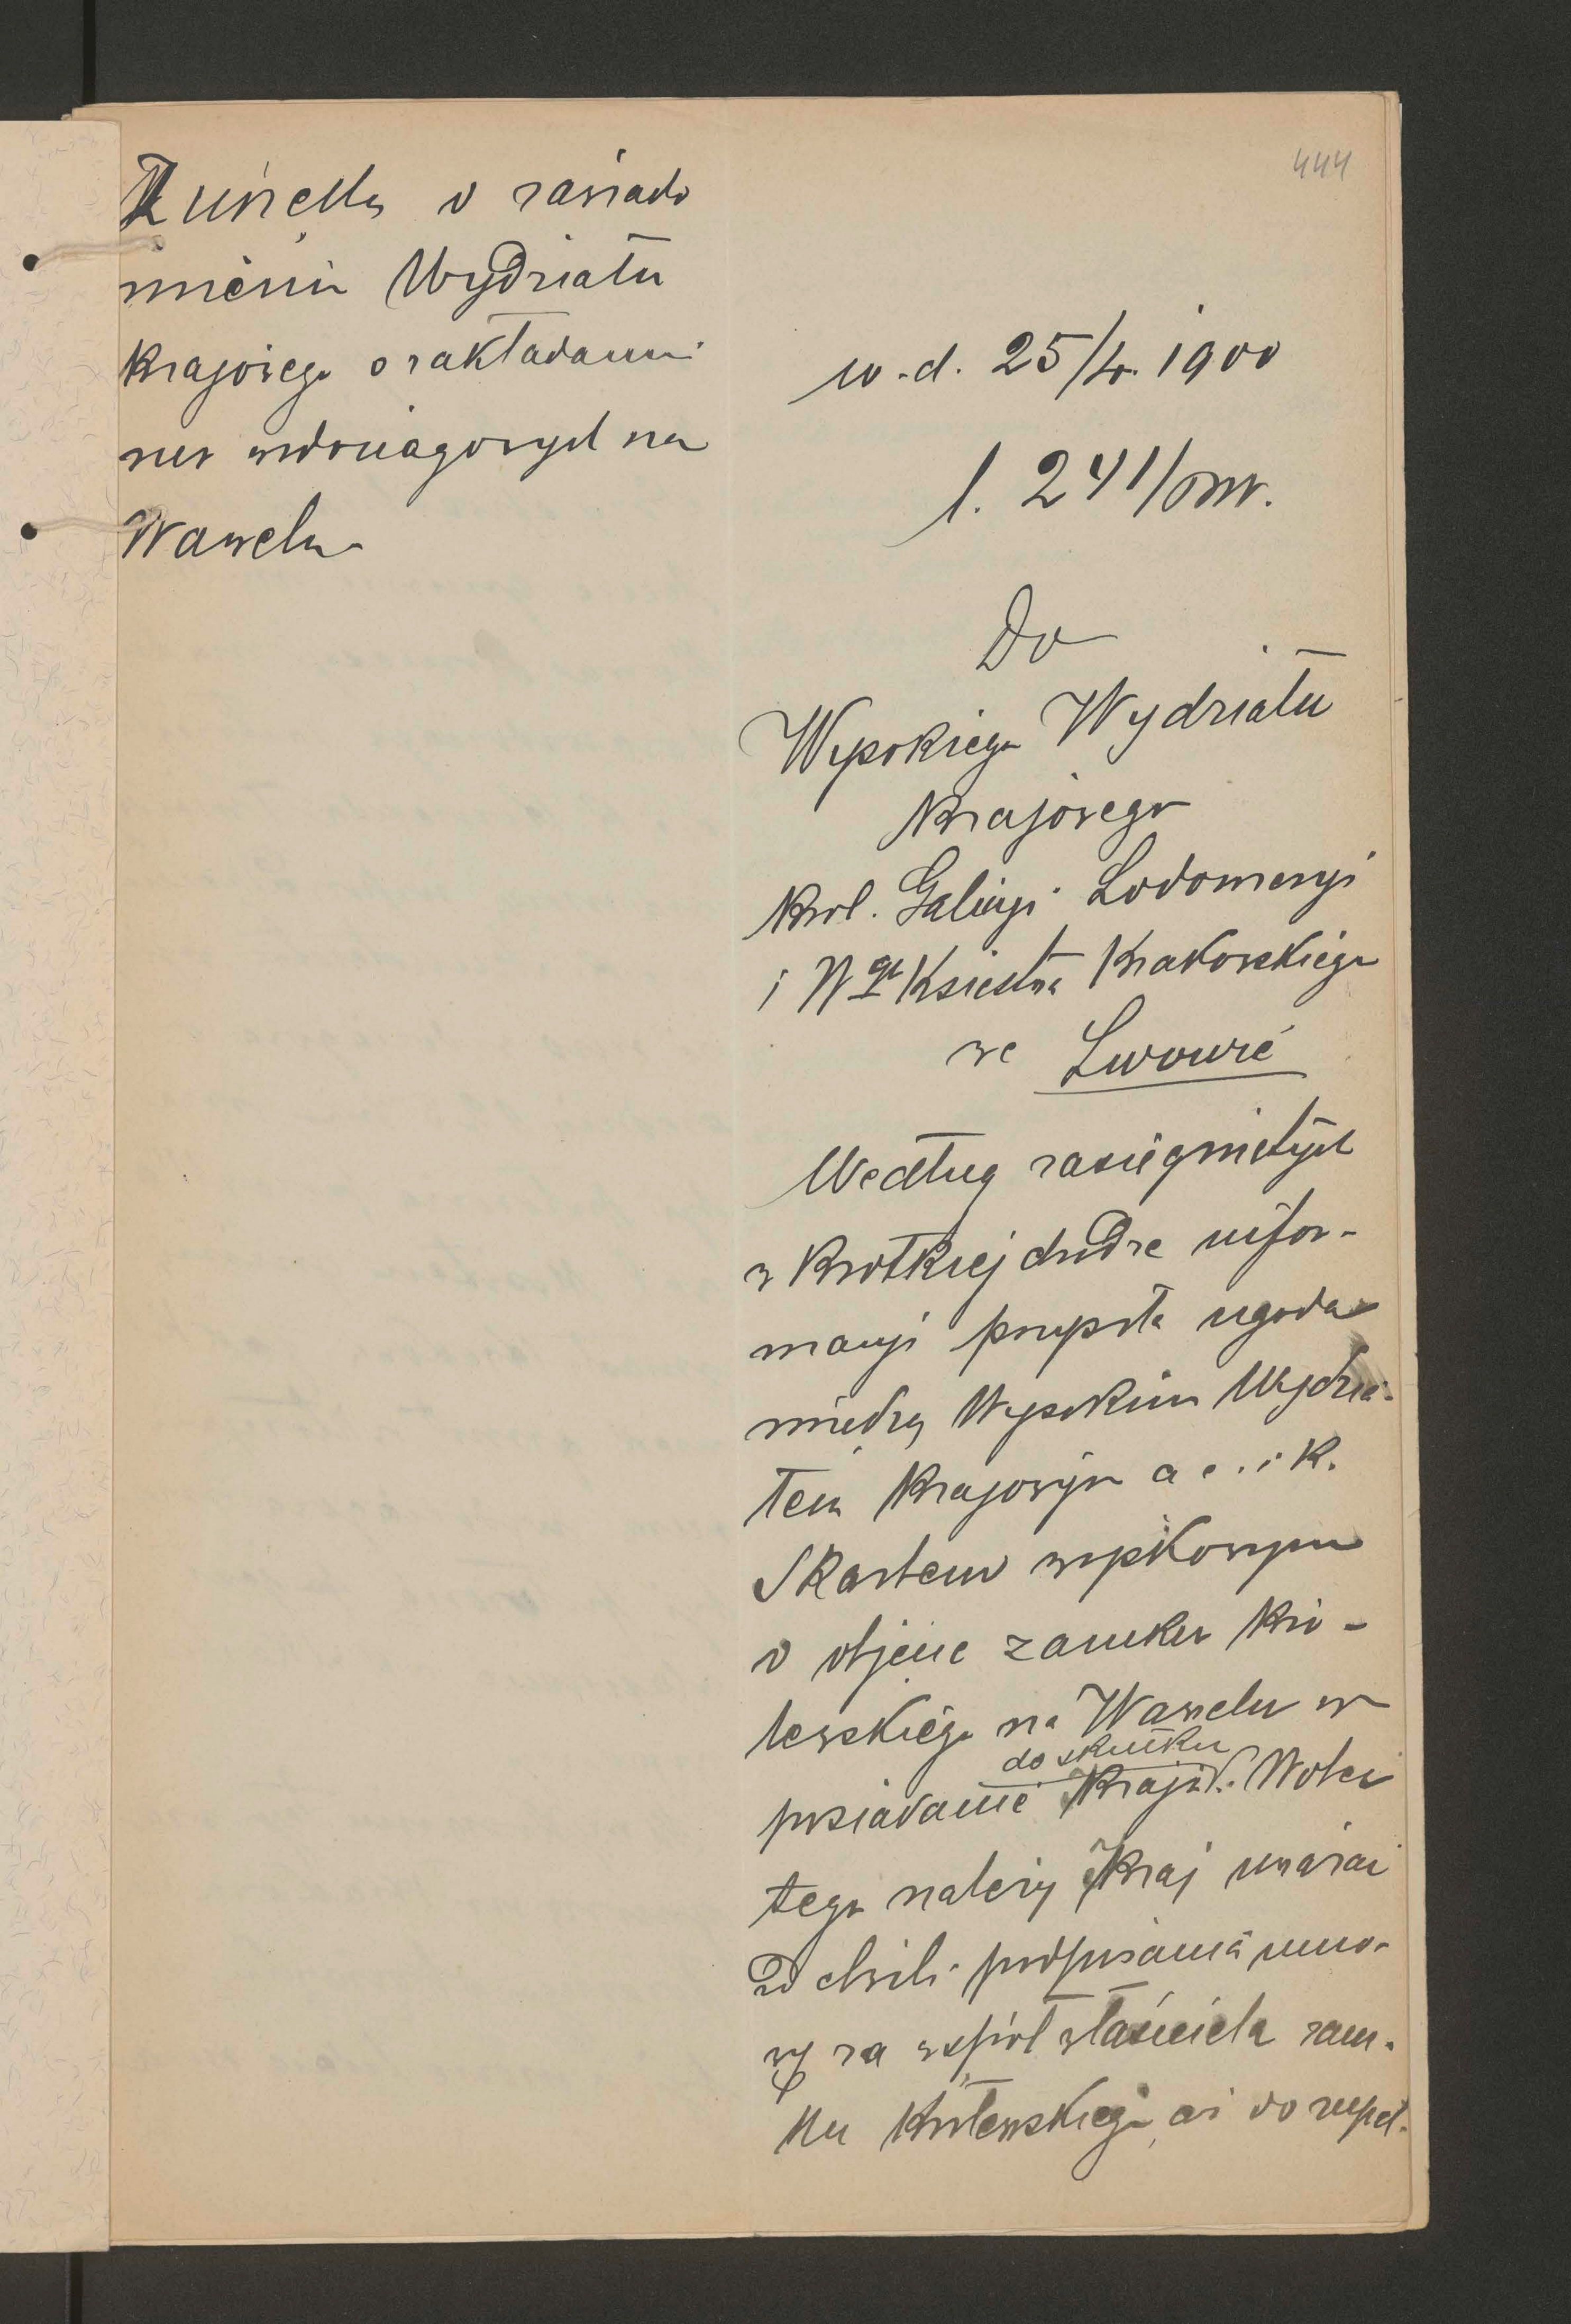 444
w.d. 25/4. 1900
l. 241/om.
o zawiado
mieniu Wydziału
Krajowego o zakładaniu
rur wodociągowych na
Wawelu
Do
Wysokiego Wydziału
Krajowego
Król. Galicyi Lodomeryi
i Wgo Księstwa Krakowskiego
we Lwowie
Według zasiągniętych
w krótkiej drodze infor-
macyi przyszła ugoda
między Wysokim Wydzia-
łem Krajowym a c. i k.
Skarbem wojskowym
o objęcie zamku Kró-
lewskiego na Wawelu w
do skutku
posiadanie Kraju. Wobec
tego należy Kraj uważać
od chwili podpisania umo-
wy za współwłaściciela zam-
ku Królewskiego, aż do zupeł-